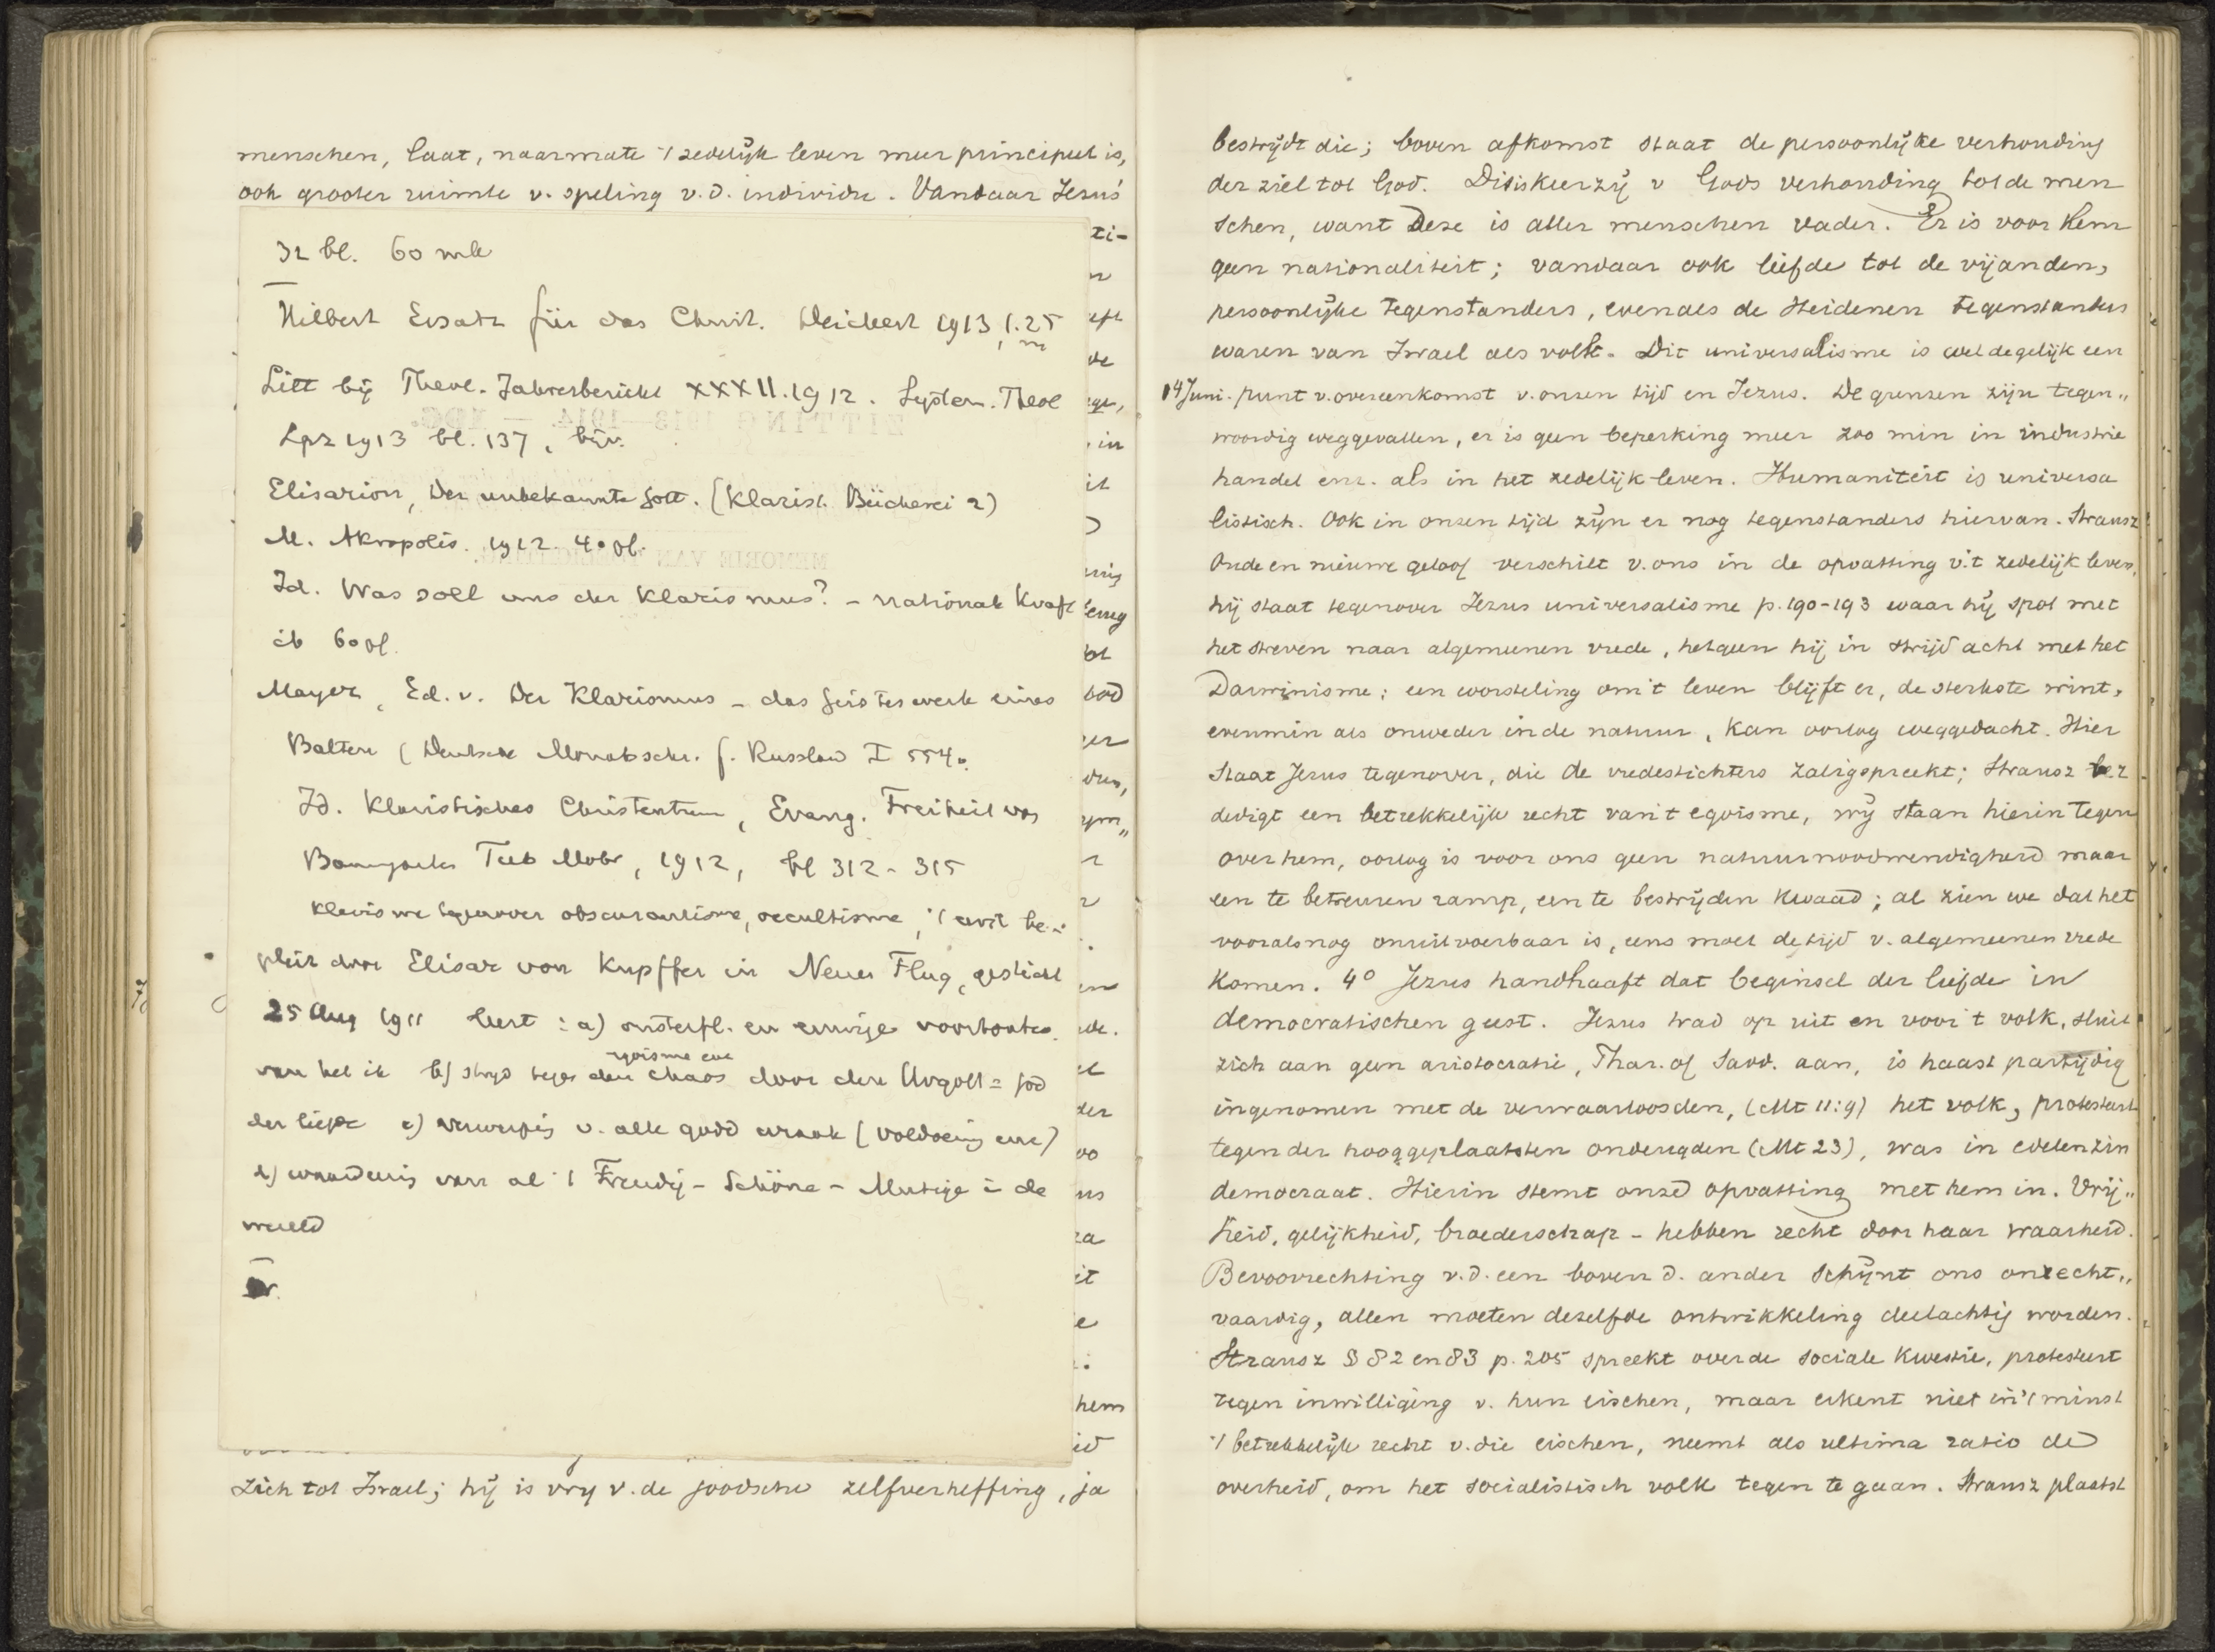 menschen, laat, naarmate 't zedelijk leven meer principieel is,
ook grooter ruimte v. speling v.d. individu. Vandaar Jezus'
32 bl. 60 mk
Hilbert Ersatz für das Christ. Deichert 1913, 1.25
m
Litt bij Theol. Jahresbericht XXXII. 1912. System. Theol
Lpz 1913 bl. 137, bijv.
Elisarion, Der unbekannte Gott. (Klarist. Bücherei 2)
M. Akropolis. 1912. 40 pf.
Id. Was soll uns der Klarismus? - nationale Kraft
ib 60 pf.
Mayer, Ed. v. Der Klarismus - das Geisteswerk eines
Balten (Deutsche Monatschr. f. Russland I 554.
Id. Klaristisches Christentum, Evang. Freiheit von
Baumgarten Tub Mohr, 1912, bl 312-315
Klarisme tegenover obscurantisme, occultisme, 't eerst be-
pleit door Elisar von Kupffer in Neuer Flug, gesticht
25 Aug 1911 leert: a) onsterfl. en eeuwige
egoisme enz
van het ik b) strijd tegen den chaos door den Urgott = God
der liefde c) verwerping v. alle godd wraak (voldoening enz)
d) van al 't Freudig - Schöne - Mutige in de
wereld
zich tot Israel; hij is vry v. de joodsche zelfverheffing, ja
bestrijdt die; boven afkomst staat de persoonlijke verhouding
der ziel tot God. Dit is keerzij v Gods verhouding tot de men
schen, want deze is aller menschen vader. Er is voor Hem
geen nationaliteit; vandaar ook liefde tot de vijanden,
persoonlijke tegenstanders, evenals de Heidenen tegenstanders
waren van Israel als volk. Dit universalisme is wel degelijk een
14 Juni. punt v. overeenkomst v. onzen tijd en Jezus. De grenzen zijn tegen"
woordig weggevallen, er is geen beperking meer zoo min in industrie
handel enz. als in het zedelijk leven. Humaniteit is universa
listisch. Ook in onzen tijd zijn er nog tegenstanders hiervan. Strausz
Oude en nieuwe geloof verschilt v. ons in de opvatting v. 't zedelijk leven,
hij staat tegenover Jezus universalisme p. 190-193 waar hij spot met
het streven naar algemeenen vrede, hetgeen hij in strijd acht met het
Darwinisme; een worsteling om 't leven blijft er, de sterkste wint,
evenmin als onweder in de natuur, kan oorlog weggedacht. Hier
staat Jezus tegenover, die de vredestichters zaligspreekt; Strausz
dedigt een betrekkelijk recht van 't egoisme, wij staan hierin tegen
over hem, oorlog is voor ons geen natuurnoodwendigheid maar
een te betreuren ramp, een te bestrijden kwaad; al zien we dat het
vooralsnog onuitvoerbaar is, eens moet de tijd v. algemeenen vrede
komen. 4° Jezus handhaaft dat beginsel der liefde in
democratischen geest. Jezus trad op uit en voor 't volk, sluit
zich aan geen aristocratie, Phar. of Sadd. aan, is haast partijdig
ingenomen met de verwaarloosden, (Mt 11:9) het volk, protesteert
tegen der hooggeplaatsten ondeugden (Mt 23), was in edelen zin
democraat. Hierin stemt onze opvatting met hem in. Vrij"
heid, gelijkheid, broederschap - hebben recht door haar waarheid.
Bevoorrechting v.d. een boven d. ander schijnt ons onrecht"
vaardig, allen moeten dezelfde ontwikkeling deelachtig worden.
Strausz § 82 en 83 p. 205 spreekt over de sociale kwestie, protesteert
tegen inwilliging v. hun eischen, maar erkent niet in 't minst
't betrekkelijk recht v. die eischen, neemt als ultima ratio de
overheid, om het socialistisch volk tegen te gaan. Strausz plaatst